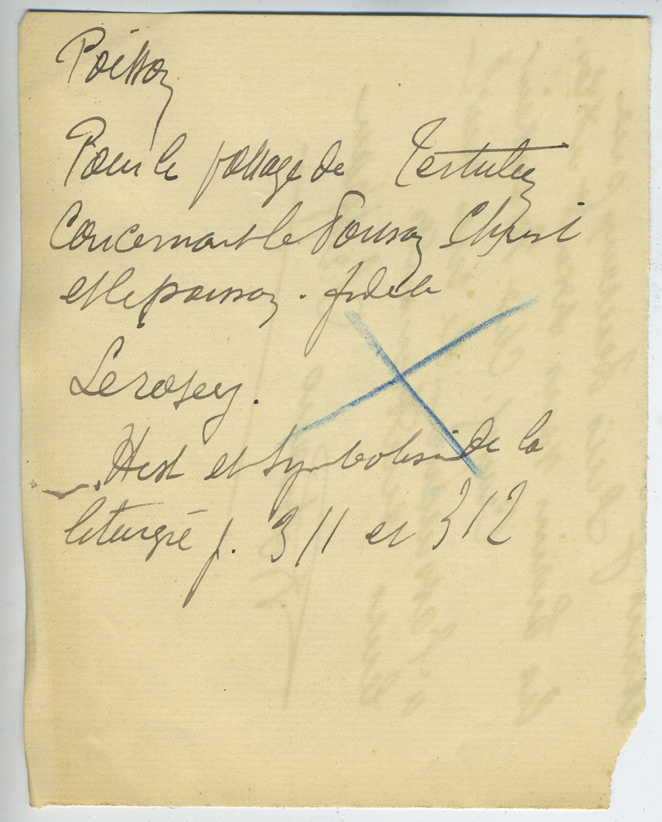 Poisson
Pour le passage de Tertulien
Concernant le Poisson Christ
et le poisson . fidele
Lerosey.
_ . Hist et Symbolisme de la
liturgie p. 311 et 312